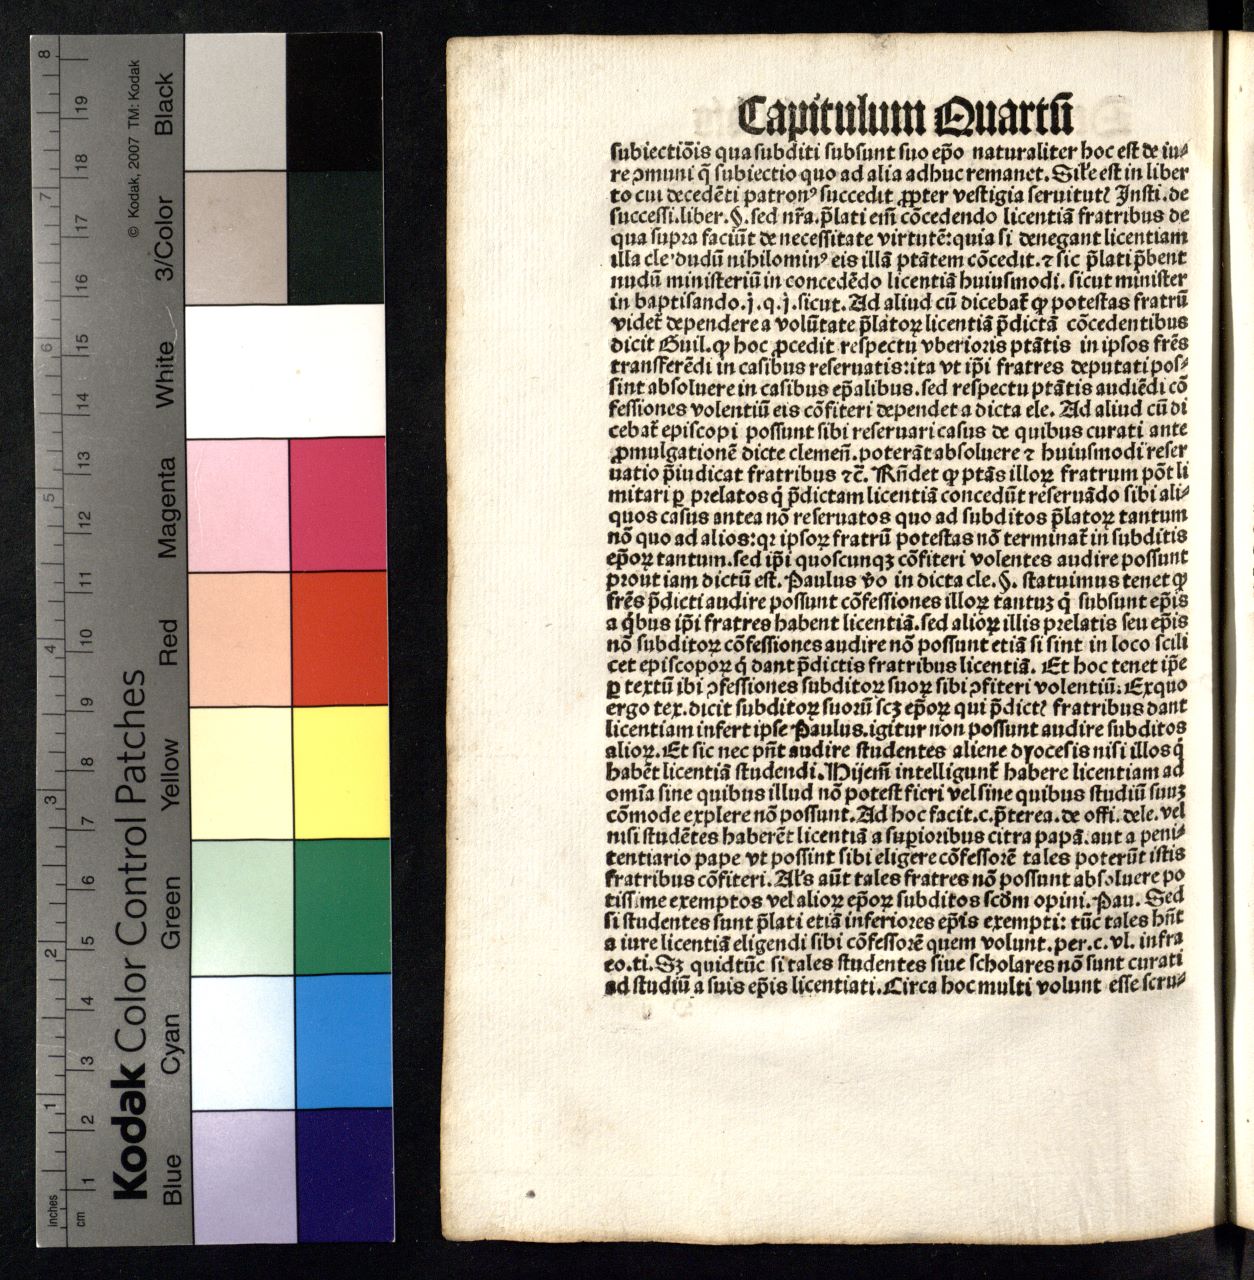 Capitulum Quartū
subiectiōis qua subditi subsunt suo ep̄o naturaliter hoc est de iu⸗
re ↄmuni q̄ subiectio quo ad alia adhuc remanet. Sil'e est in liber
to cui decedēti patronꝰ succedit ꝓpter vestigia seruitutꝭ Insti. de
successi. liber. §. sed nr̄a. p̄lati em̄ cōcedendo licentiā fratribus de
qua supra faciūt de necessitate virtutē: quia si denegant licentiam
illa cle' dudū nihilominꝰ eis illā ptātem cōcedit. ⁊ sic p̄lati p̄bent
nudū ministeriū in concedēdo licentiā huiusmodi. sicut minister
in baptisando. j. q. j. sicut. Ad aliud cū dicebat̄ ꝙ potestas fratrū
videt̄ dependere a volūtate p̄latoꝝ licentiā p̄dictā cōcedentibus
dicit Guil. ꝙ hoc ꝓcedit respectu vberioris ptātis in ipsos frēs
transferēdi in casibus reseruatis: ita vt ip̄i fratres deputati pos⸗
sint absoluere in casibus ep̄alibus. sed respectu ptātis audiēdi cō
fessiones volentiū eis cōfiteri dependet a dicta cle. Ad aliud cū di
cebat̄ episcopi possunt sibi reseruari casus de quibus curati ante
ꝓmulgationē dicte clemen̄. poterāt absoluere ⁊ huiusmodi reser
uatio p̄iudicat fratribus ⁊c̄. Rn̄det ꝙ ptās illoꝝ fratrum pōt li
mitari ꝑ prelatos q̇ p̄dictam licentiā concedūt reseruādo sibi ali⸗
quos casus antea nō reseruatos quo ad subditos p̄latoꝝ tantum
nō quo ad alios: qꝛ ipsoꝝ fratrū potestas nō terminat̄ in subditis
ep̄oꝝ tantum. sed ip̄i quoscunqꝫ cōfiteri volentes audire possunt
prout iam dictū est. Paulus v̄o in dicta cle. §. statuimus tenet ꝙ
frēs p̄dicti audire possunt cōfessiones illoꝝ tantuꝫ q̇ subsunt ep̄is
a q̇bus ip̄i fratres habent licentiā. sed alioꝝ illis prelatis seu ep̄is
nō subditoꝝ cōfessiones audire nō possunt etiā si sint in loco scili
cet episcopoꝝ q̇ dant p̄dictis fratribus licentiā. Et hoc tenet ip̄e
ꝑ textū ibi ↄfessiones subditoꝝ suoꝝ sibi ↄfiteri volentiū. Ex quo
ergo tex. dicit subditoꝝ suorū scꝫ ep̄oꝝ qui p̄dictꝭ fratribus dant
licentiam infert ipse Paulus. igitur non possunt audire subditos
alioꝝ. Et sic nec pn̄t audire studentes aliene dyocesis nisi illos q̇
habēt licentiā studendi. Hij em̄ intelligunt̄ habere licentiam ad
omīa sine quibus illud nō potest fieri vel sine quibus studiū suuꝫ
cōmode explere nō possunt. Ad hoc facit. c. p̄terea. de offi. dele. vel
nisi studētes haberēt licentiā a supioribus citra papā. aut a peni⸗
tentiario pape vt possint sibi eligere cōfessorē tales poterūt istis
fratribus cōfiteri. Al's aūt tales fratres nō possunt absoluere po
tissime exemptos vel alioꝝ ep̄oꝝ subditos scd̄m opini. Pau. Sed
si studentes sunt p̄lati etiā inferiores ep̄is exempti: tūc tales hn̄t
a iure licentiā eligendi sibi cōfessorē quem volunt. per. c. vl. infra
eo. ti. Sꝫ quid tūc si tales studentes siue scholares nō sunt curati
ad studiū a suis ep̄is licentiati. Circa hoc multi volunt esse scru⸗
Kodak Color Control Patches
© Kodak, 2007 TM: Kodak
Blue Cyan Green Yellow Red Magenta White 3/Color Black
inches 1 2 3 4 5 6 7 8
cm 1 2 3 4 5 6 7 8 9 10 11 12 13 14 15 16 17 18 19